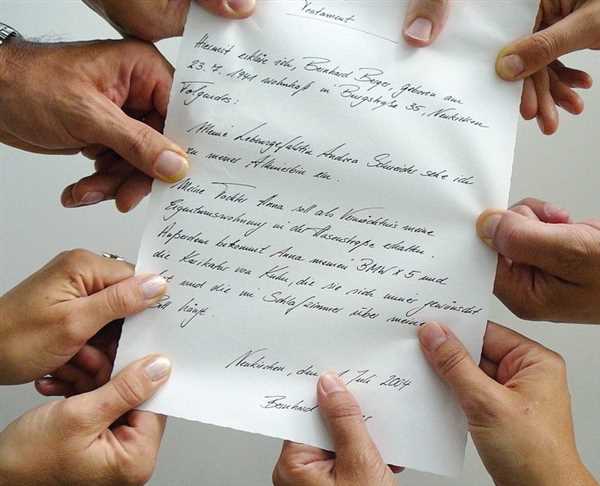 Testament
Hiermit erkläre ich, Bernhard Beyer, geboren am
23. 7. 1941 wohnhaft in Burgstraße 35, Neukirchen
Folgendes:
Meine Lebensgefährtin Andrea Schneider setze ich
zu meiner Alleinerbin ein.
Meine Tochter Anna soll als Vermächtnis meine
Eigentumswohnung in der Hasenstraße erhalten.
Außerdem bekommt Anna meinen BMW X5 und
die Karikatur von Kuhn, die sie sich immer gewünscht
und die im Schlafzimmer über
hängt.
Neukirchen, den 1 Juli 2004
Bernhard